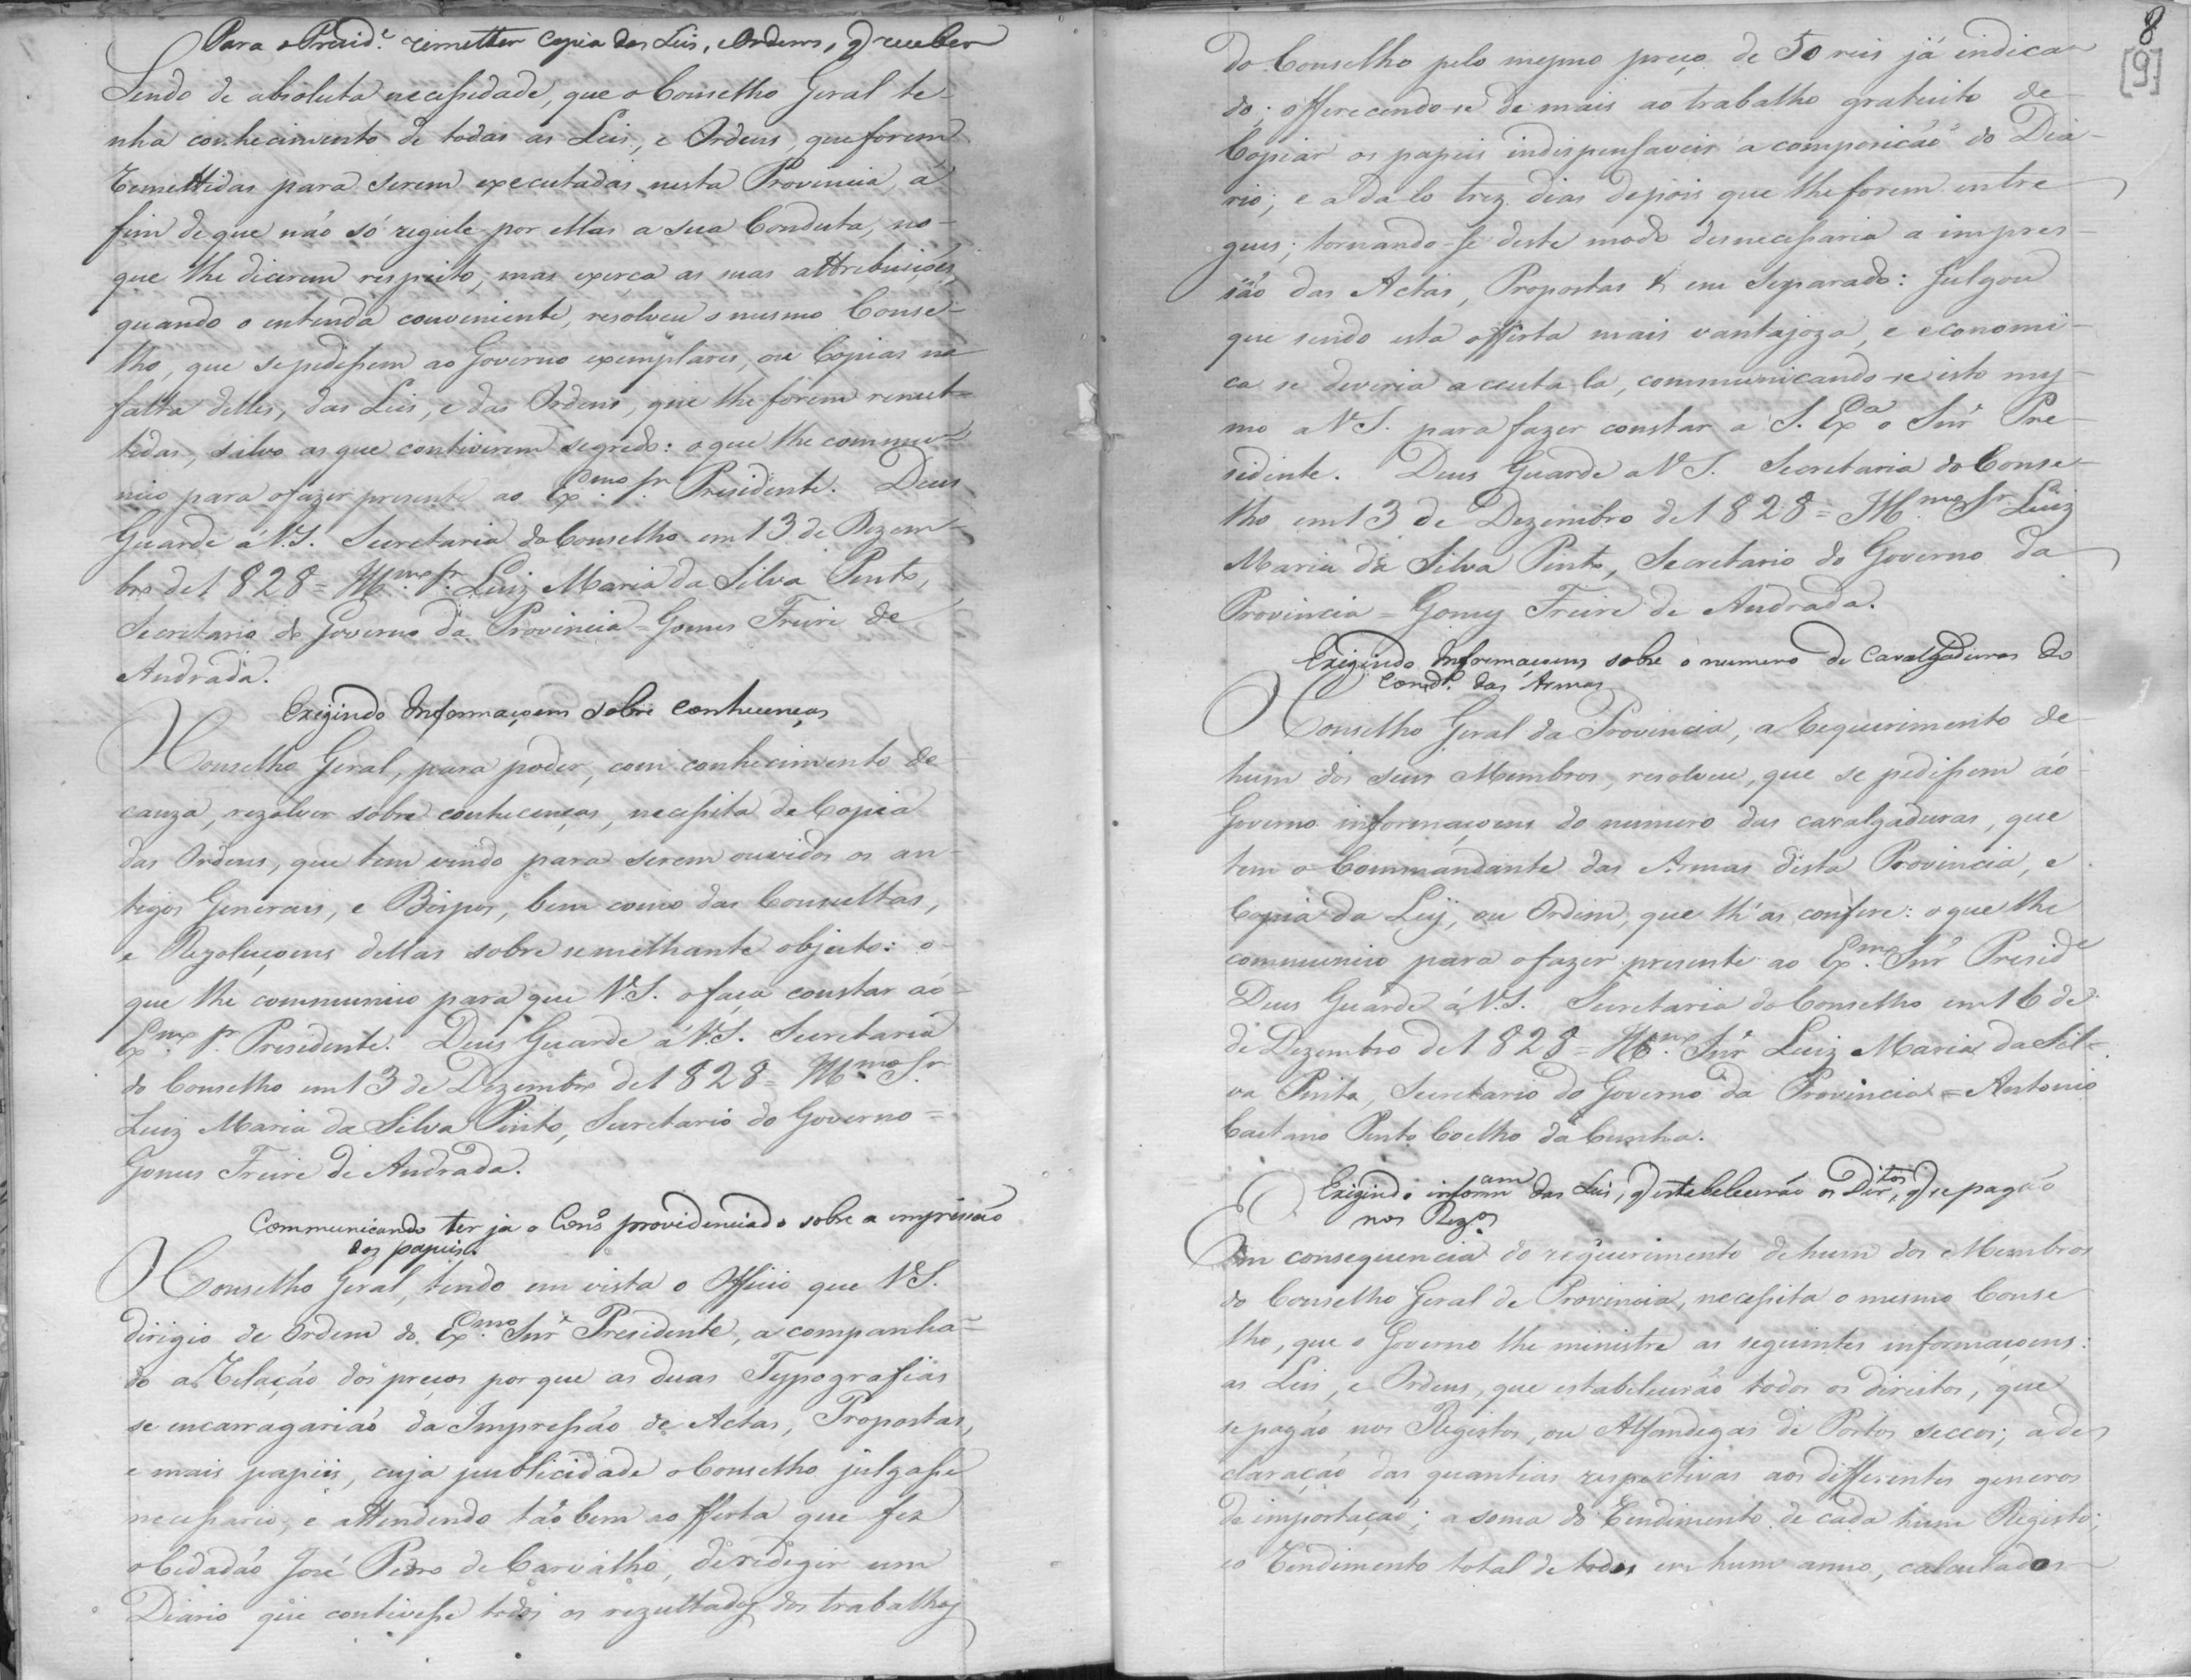 Para o Presid.e remetter copia das Leis, e Ordens, q receber
Sendo de absoluta necessidade, que o Conselho Geral te-
nha conhecimento de todas as Leis, e Ordens, que forem
remettidas para serem executadas nesta Provincia, á
fim de que não só regule por ellas a sua Conducta, no-
que lhe dicerem respeito, mas exerça as suas attribuiçoes,
quando o entenda conveniente, resolveu o mesmo Conse-
lho, que se pedissem ao Governo exemplares, ou Copias na
falta delles, das Leis, e das Ordens, que lhe forem remet-
tidas, salvo as que contiverem segredo: o que lhe commu-
nico para o fazer presente ao Ex.mo Sr. Presidente. Deus
Guarde á V.S. Secretaria do Conselho em 13 de Dezem-
bro de 1828 = Ill.mo Sr. Luiz Maria da Silva Pinto,
Secretario do Governo da Provincia = Gomes Freire de
Andrada.
Exigindo Informaçoens sobre conhecenças
O Conselho Geral, para poder, com conhecimento de
cauza, rezolver sobre conhecenças, necessita de Copia
das Ordens, que tem vindo para serem ouvidos os an-
tigos Generais, e Bispos, bem como das Consultas,
e Rezoluçoens dellas sobre semelhante objecto: o-
que lhe communico para que V.S. o faça constar ao
Ex.mo Sr. Presidente. Deus Guarde á V.S. Secretaria
do Conselho em 13 de Dezembro de 1828 = Ill.mo Sr
Luiz Maria da Silva Pinto, Secretario do Governo =
Gomes Freire de Andrada.
Communicando ter já o Cons.o providenciado sobre a impressão
dos papeis.
O Conselho Geral, tendo em vista o Officio que V.S.
dirigio de Ordem do Ex.mo Snr Presidente, acompanha-
do a Relação dos preços porque as duas Typografias
se encarragarião da Impressão de Actas, Propostas,
e mais papeis, cuja publicidade o Conselho julgasse
necessario, e attendendo tão bem a offerta que fez
o Cidadão José Pedro de Carvalho, de redigir um
Diario que contivesse todos os rezultados dos trabalhos
8
[9]
do Conselho pelo mesmo preço de 50 reis já indica-
do; offerecendo-se de mais ao trabalho gratuito de
Copiar os papeis indispensaveis á composição do Dia-
rio, e a da-lo trez dias depois que lhe forem entre
gues; tornando-se deste modo desnecessaria a impres-
são das Actas, Propostas & em separado: Julgou
que sendo esta offerta mais vantajoza, e economi-
ca se deveria aceita-la, communicando-se isto mes-
mo a V.S. para fazer constar a S. Exa o Snr Pre-
sidente. Deus Guarde a V.S. Secretaria do Conse-
lho em 13 de Dezembro de 1828 = Ill.mo Sr Luiz
Maria da Silva Pinto, Secretario do Governo da
Provincia = Gomes Freire de Andrada.
Exigindo Informaçoens sobre o numero de Cavalgaduras do
Comd.e das Armas
O Conselho Geral da Provincia, a Requerimento de
hum dos seus Membros, resolveu, que se pedissem ao
Governo informaçoens do numero das cavalgaduras, que
tem o Commandante das Armas desta Provincia, e
Copia da Ley, ou Ordem, que lh'as confere: o que lhe
communico para o fazer presente ao Ex.mo Snr Presid.e
Deus Guarde á V.S. Secretaria do Conselho em 16 de
de Dezembro de 1828 = Ill.mo Snr Luiz Maria da Sil-
va Pinto, Secretario do Governo da Provincia = Antonio
Caetano Pinto Coelho da Cunha.
Exigindo inform.am das Leis, q estabelecerão os Dir.tos, q se pagão
nos Reg.os
Em consequencia do requerimento de hum dos Membros
do Conselho Geral de Provincia, necessita o mesmo Conse
lho, que o Governo lhe ministre as seguintes informaçoens:
as Leis, e Ordens, que estabelecerão todos os direitos, que
se pagão nos Registos, ou Alfandegas de Portos seccos; a de
claração das quantias respectivas aos differentes generos
de importação; a soma do Rendimento de cada hum Registo;
e o Rendimento total de todos em hum anno, calculados